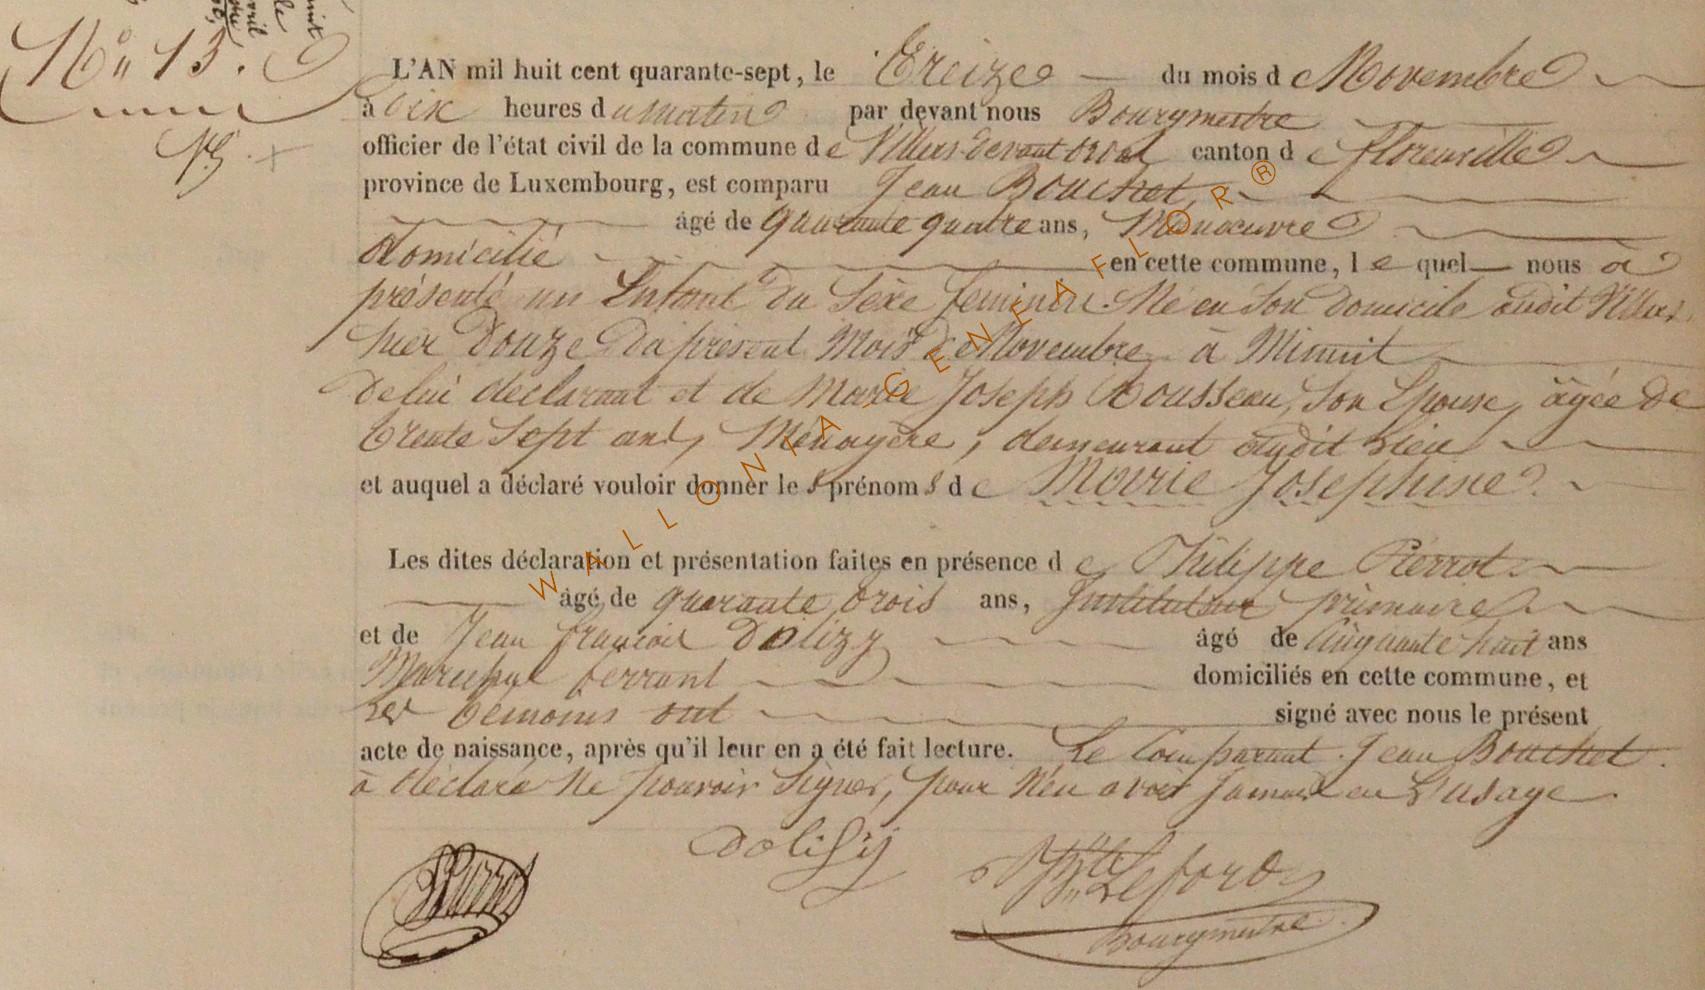 N° 13.
L'AN mil huit cent quarante-sept, le Treize du mois de Novembre
à dix heures du matin par devant nous Bourgmestre
officier de l'état civil de la commune de Villers devant orval canton de florenville
province de Luxembourg, est comparu Jean Bouchet,
âgé de quarante quatre ans, Manoeuvre
domicilié en cette commune, lequel nous à
présenté un Enfant du Sèxe feminin. Né en Son domicile audit Villers,
hier Douze du présent Mois de Novembre à Minuit
de lui déclarant et de Marie Joseph Rousseau, Son Epouse, âgée de
trente Sept ans, Ménagère, demeurant audit Lieu
et auquel a déclaré vouloir donner les prénoms de Marie Josephine.
Les dites déclaration et présentation faites en présence de Philippe Pierrot
âgé de quarante trois ans, Instituteur primaire
et de Jean françois Dolizy âgé de Cinquante huit ans
Marechal ferrant domiciliés en cette commune, et
Les témoins ont signé avec nous le présent
acte de naissance, après qu'il leur en a été fait lecture. Le Comparant Jean Bouchet
à déclaré Ne pouvoir Signer, pour N'en avoir Jamais eu L'usage
Dolisy
Lefort
Bourgmestre
WALLONIA-GENEAFLOR®